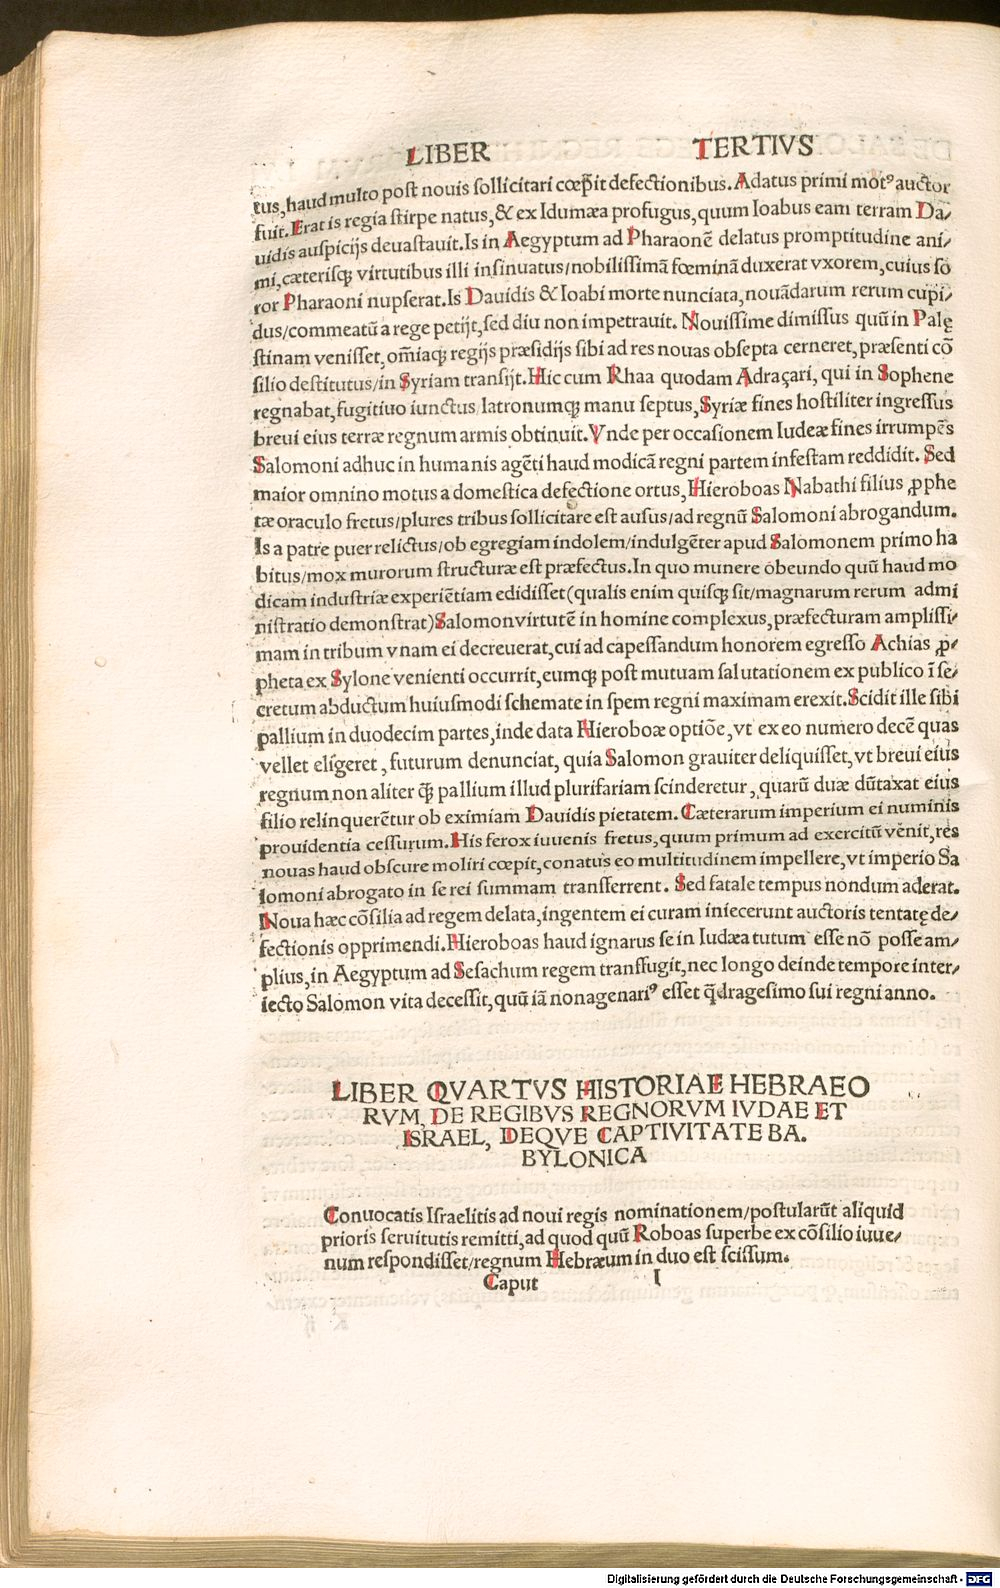 LIBER TERTIVS
tus, haud multo post novis sollicitari cœpit defectionibus. Adatus primi motꝰ auctor
fuit. Erat is regia stirpe natus, & ex Idumæa profugus, quum Ioabus eam terram Da/
uidis auspicijs deuastauit. Is in Aegyptum ad Pharaonẽ delatus promptitudine ani/
mi, cæterisqꝫ virtutibus illi insinuatus/nobilissimã fœminã duxerat vxorem, cuius so
ror Pharaoni nupserat. Is Dauidis & Ioabi morte nunciata, nouãdarum rerum cupi/
dus/commeatũ a rege petijt, sed diu non impetrauit. Nouissime dimissus quũ in Palę
stinam venisset, om̃iaqꝫ regijs præsidijs sibi ad res nouas obsepta cerneret, præsenti cõ
silio destitutus/in Syriam transijt. Hic cum Rhaa quodam Adraçari, qui in Sophene
regnabat, fugitiuo iunctus/latronumqꝫ manu septus, Syriæ fines hostiliter ingressus
breui eius terræ regnum armis obtinuit. Vnde per occasionem Iudeæ fines irrumpẽs
Salomoni adhuc in humanis agẽti haud modicã regni partem infestam reddidit. Sed
maior omnino motus a domestica defectione ortus, Hieroboas Nabathi filius ꝓphe
tæ oraculo fretus/plures tribus sollicitare est ausus/ad regnũ Salomoni abrogandum.
Is a patre puer relictus/ob egregiam indolem/indulgẽter apud Salomonem primo ha
bitus/mox murorum structuræ est præfectus. In quo munere obeundo quũ haud mo
dicam industriæ experiẽtiam edidisset (qualis enim quisqꝫ sit/magnarum rerum admi
nistratio demonstrat) Salomon virtutẽ in homine complexus, præfecturam amplissi/
mam in tribum vnam ei decreuerat, cui ad capessandum honorem egresso Achias ꝓ/
pheta ex Sylone venienti occurrit, eumqꝫ post mutuam salutationem ex publico ĩ se/
cretum abductum huiusmodi schemate in spem regni maximam erexit. Scidit ille sibi
pallium in duodecim partes, inde data Hieroboæ optiõe, vt ex eo numero decẽ quas
vellet eligeret, futurum denunciat, quia Salomon grauiter deliquisset, vt breui eius
regnum non aliter q̃ꝫ pallium illud plurifariam scinderetur, quarũ duæ dũtaxat eius
filio relinquerẽtur ob eximiam Dauidis pietatem. Cæterarum imperium ei numinis
prouidentia cessurum. His ferox iuuenis fretus, quum primum ad exercitũ venit, res
nouas haud obscure moliri cœpit, conatus eo multitudinem impellere, vt imperio Sa
lomoni abrogato in se rei summam transferrent. Sed fatale tempus nondum aderat.
Noua hæc cõsilia ad regem delata, ingentem ei curam iniecerunt auctoris tentatę de/
fectionis opprimendi. Hieroboas haud ignarus se in Iudæa tutum esse nõ posse am/
plius, in Aegyptum ad Sesachum regem transfugit, nec longo deinde tempore inter/
iecto Salomon vita decessit, quũ iã nonagenariꝰ esset q̃dragesimo sui regni anno.
LIBER QVARTVS HISTORIAE HEBRAEO
RVM, DE REGIBVS REGNORVM IVDAE ET
ISRAEL, DEQVE CAPTIVITATE BA.
BYLONICA
Conuocatis Israelitis ad noui regis nominationem/postularũt aliquid
prioris seruitutis remitti, ad quod quũ Roboas superbe ex cõsilio iuue/
num respondisset/regnum Hebræum in duo est scissum.
Caput I
Digitalisierung gefördert durch die Deutsche Forschungsgemeinschaft - DFG